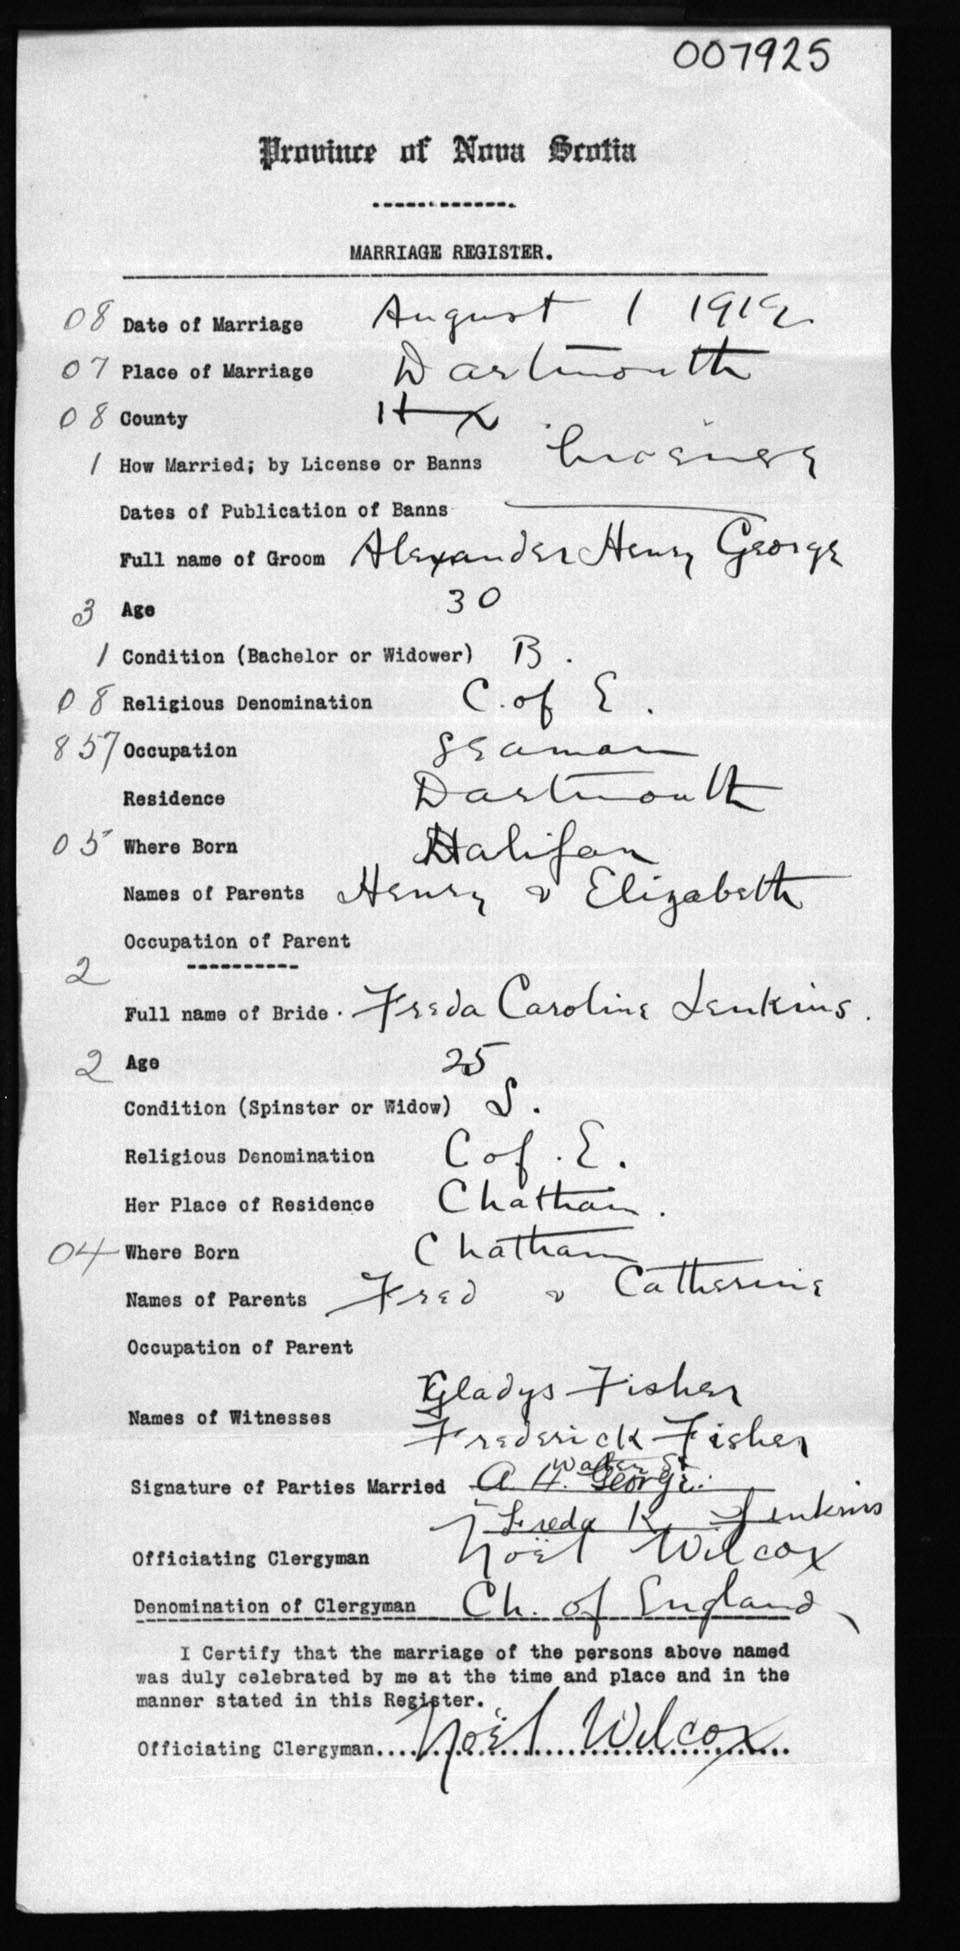 007925
Province of Nova Scotia
MARRIAGE REGISTER.
08 Date of Marriage August 1 1912
07 Place of Marriage Dartmouth
08 County Hx
1 How Married; by License or Banns License
Dates of Publication of Banns
Full name of Groom Alexander Henry George
3 Age 30
1 Condition (Bachelor or Widower) B.
08 Religious Denomination C. of E.
857 Occupation Seaman
Residence Dartmouth
05 Where Born Halifax
Names of Parents Henry & Elizabeth
Occupation of Parent
2
Full name of Bride. Freda Caroline Jenkins.
2 Age 25
Condition (Spinster or Widow) S.
Religious Denomination C of. E.
Her Place of Residence Chatham.
04 Where Born Chatham
Names of Parents Fred & Catherine
Occupation of Parent
Gladys Fisher
Names of Witnesses
Frederick Fisher
Signature of Parties Married A. H. George.
Freda K. Jenkins
Officiating Clergyman Noël Wilcox
Denomination of Clergyman Ch. of England
I Certify that the marriage of the persons above named
was duly celebrated by me at the time and place and in the
manner stated in this Register.
Officiating Clergyman.... Noël Wilcox